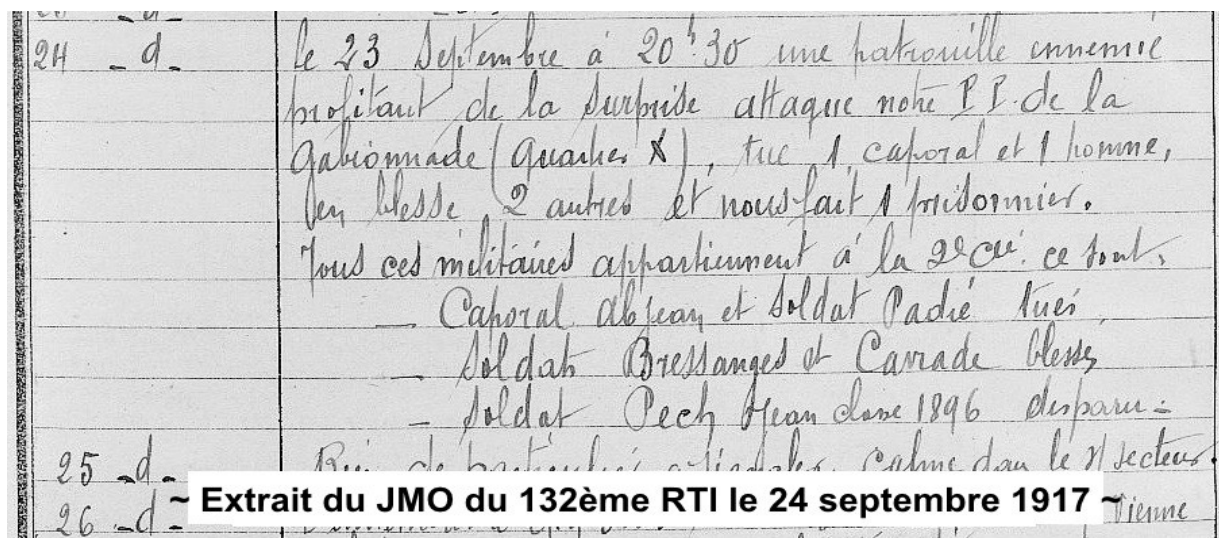 24 _ d _ le 23 Septembre à 20h30 une patrouille ennemie
profitant de la surprise attaque notre P P. de la
Gabionnade (Quartier X), tue 1 caporal et 1 homme,
en blesse 2 autres et nous fait 1 prisonnier.
Tous ces militaires appartiennent à la 2e Cie. ce sont,
_ Caporal Abjean et Soldat Padié tués
_ Soldats Bressanges et Carrade blessés
_ Soldat Pech Jean classe 1896 disparu _
25 _ d _ Rien de particulier à signaler. Calme dans le secteur.
~ Extrait du JMO du 132ème RTI le 24 septembre 1917 ~
26 _ d _